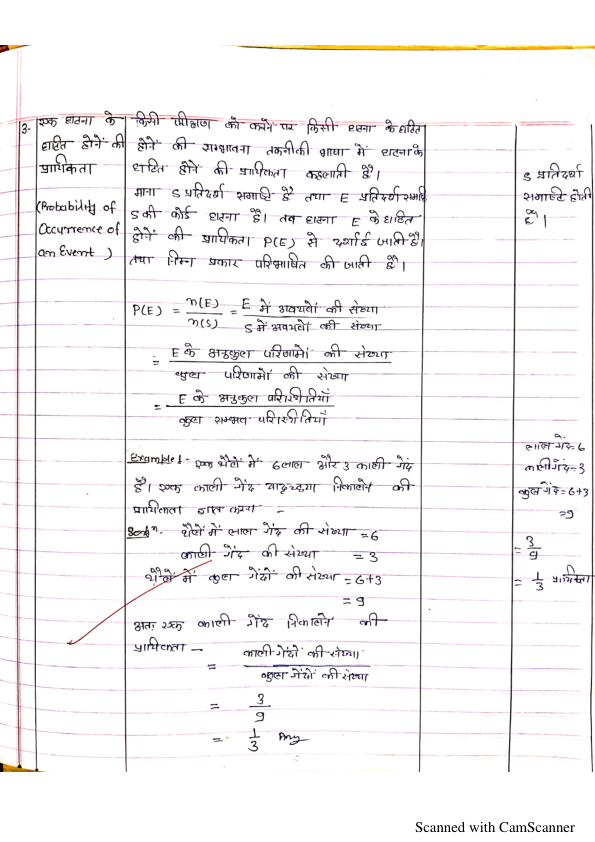 3.
एक घटना के
घटित होनें की
प्रायिकता
(Probability of
Occurrence of
an Event )
किसी परीक्षण को करने पर किसी घटना के घटित
होनें की सम्भावना तकनीकी भाषा में घटना के
घटित होने की प्रायिकता कहलाती है।
माना S प्रतिदर्श समष्टि है तथा E प्रतिदर्श समष्टि
S की कोई घटना है। तब घटना E के घटित
होनें की प्रायिकता P(E) से दर्शाई जाती है।
तथा निम्न प्रकार परिभाषित की जाती है।
P(E) = n(E) / n(S) = E में अवयवों की संख्या / S में अवयवों की संख्या
= E के अनुकुल परिणामों की संख्या / कुल परिणामों की संख्या
= E के अनुकुल परिस्थितियाँ / कुल सम्भव परिस्थितियाँ
Example 1- एक थैले में 6 लाल और 3 काली गेंद
है। एक काली गेंद यादृच्छया निकालने की
प्रायिकता ज्ञात करना -
थैले में लाल गेंद की संख्या = 6
काली गेंद की संख्या = 3
थैले में कुल गेंदों की संख्या = 6+3
= 9
अतः एक काली गेंद निकालने की
प्रायिकता —
= काली गेंदों की संख्या / कुल गेंदों की संख्या
= 3/9
= 1/3 Ans
S प्रतिदर्श
समष्टि होती
है।
लाल गेंद = 6
काली गेंद = 3
कुल गेंद = 6+3
= 9
= 3/9
= 1/3 प्रायिकता
Scanned with CamScanner